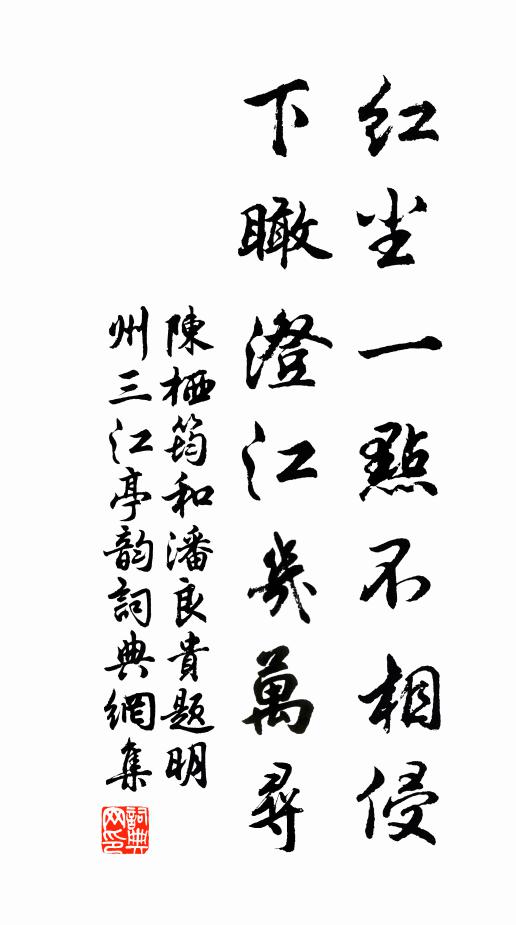 紅尘一點不相侵
下瞰澄江幾萬尋
陳栖筠和潘良貴題明
州三江亭韵詞典網集
詞典网印